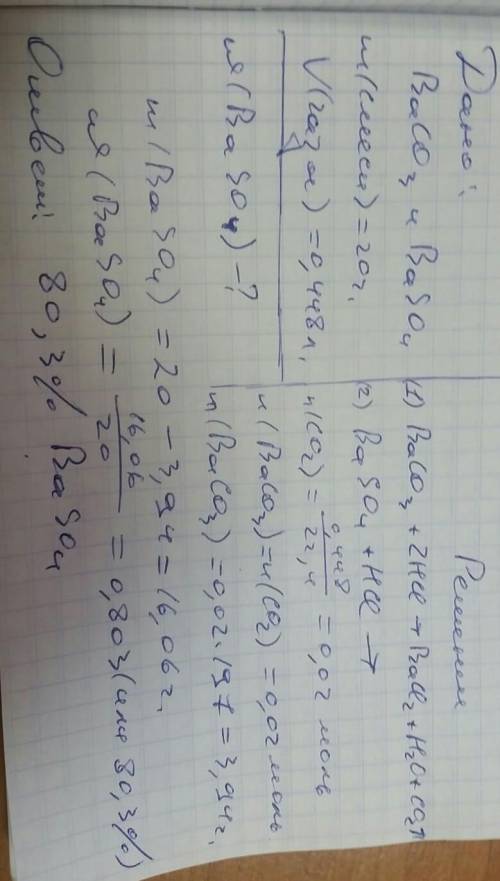 Дано:
BaCO3 и BaSO4
m(смеси) = 20г.
V(газа) = 0,448л.
ω(BaSO4) - ?
Решение
(1) BaCO3 + 2HCl → BaCl2 + H2O + CO2↑
(2) BaSO4 + HCl →
n(CO2) = 0,448 / 22,4 = 0,02 моль
n(BaCO3) = n(CO2) = 0,02 моль
m(BaCO3) = 0,02·197 = 3,94г.
m(BaSO4) = 20 - 3,94 = 16,06г.
ω(BaSO4) = 16,06 / 20 = 0,803 (или 80,3%)
Ответ: 80,3% BaSO4